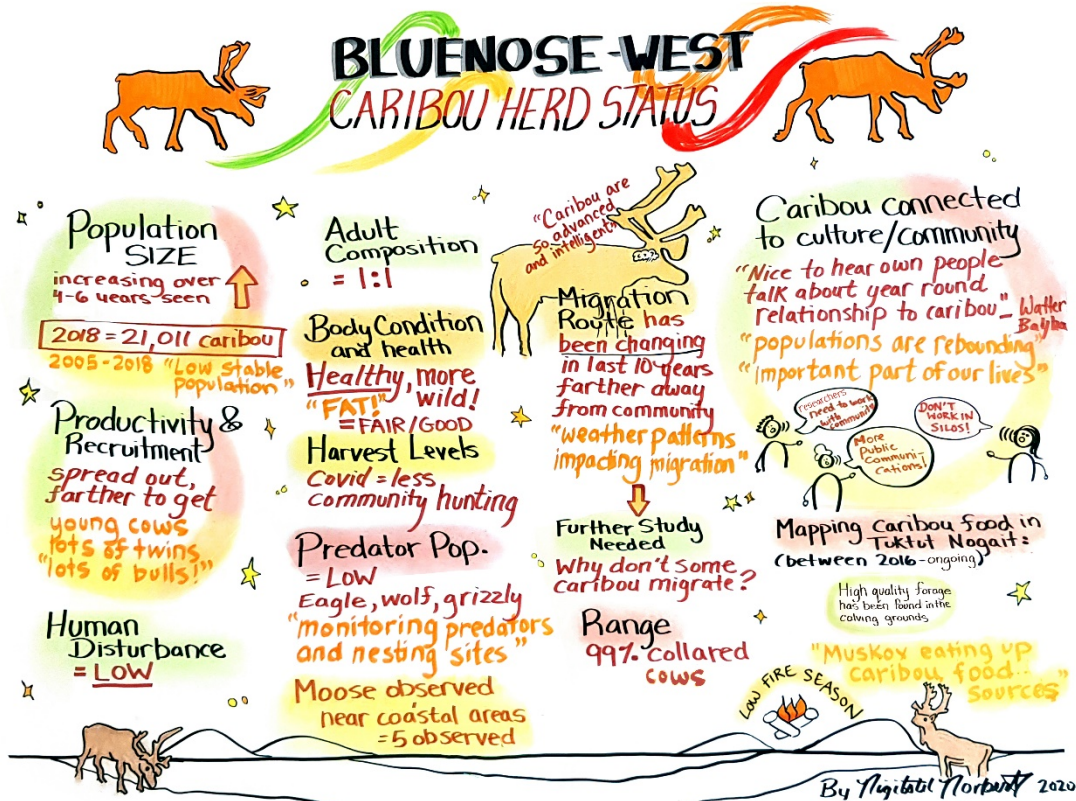 BLUENOSE-WEST
CARIBOU HERD STATUS
Population
SIZE
increasing over
4-6 years seen
2018 = 21,011 caribou
2005-2018 "Low stable
population"
Productivity &
Recruitment
spread out,
farther to get
young cows
lots of twins
"lots of bulls!"
Human
Disturbance
= LOW
Adult
Composition
= 1:1
Body Condition
and health
Healthy, more
wild!
"FAT!"
= FAIR/GOOD
Harvest Levels
Covid = less
community hunting
Predator Pop.
= LOW
Eagle, wolf, grizzly
"monitoring predators
and nesting sites"
Moose observed
near coastal areas
= 5 observed
"Caribou are
so advanced
and intelligent"
Migration
Route has
been changing
in last 10 years
farther away
from community
"weather patterns
impacting migration"
Further Study
Needed
Why don't some
caribou migrate?
Range
99% collared
cows
Caribou connected
to culture/community
"Nice to hear own people
talk about year round
relationship to caribou"
Walter
"populations are rebounding"
"important part of our lives"
researchers
need to work
with community
More
Public
Communi-
cations!
DON'T
WORK IN
SILOS!
Mapping Caribou food in
Tuktut Nogait:
(between 2016-ongoing)
High quality forage
has been found in the
calving grounds
"Muskox eating up
caribou food..
sources"
LOW FIRE SEASON
By 2020